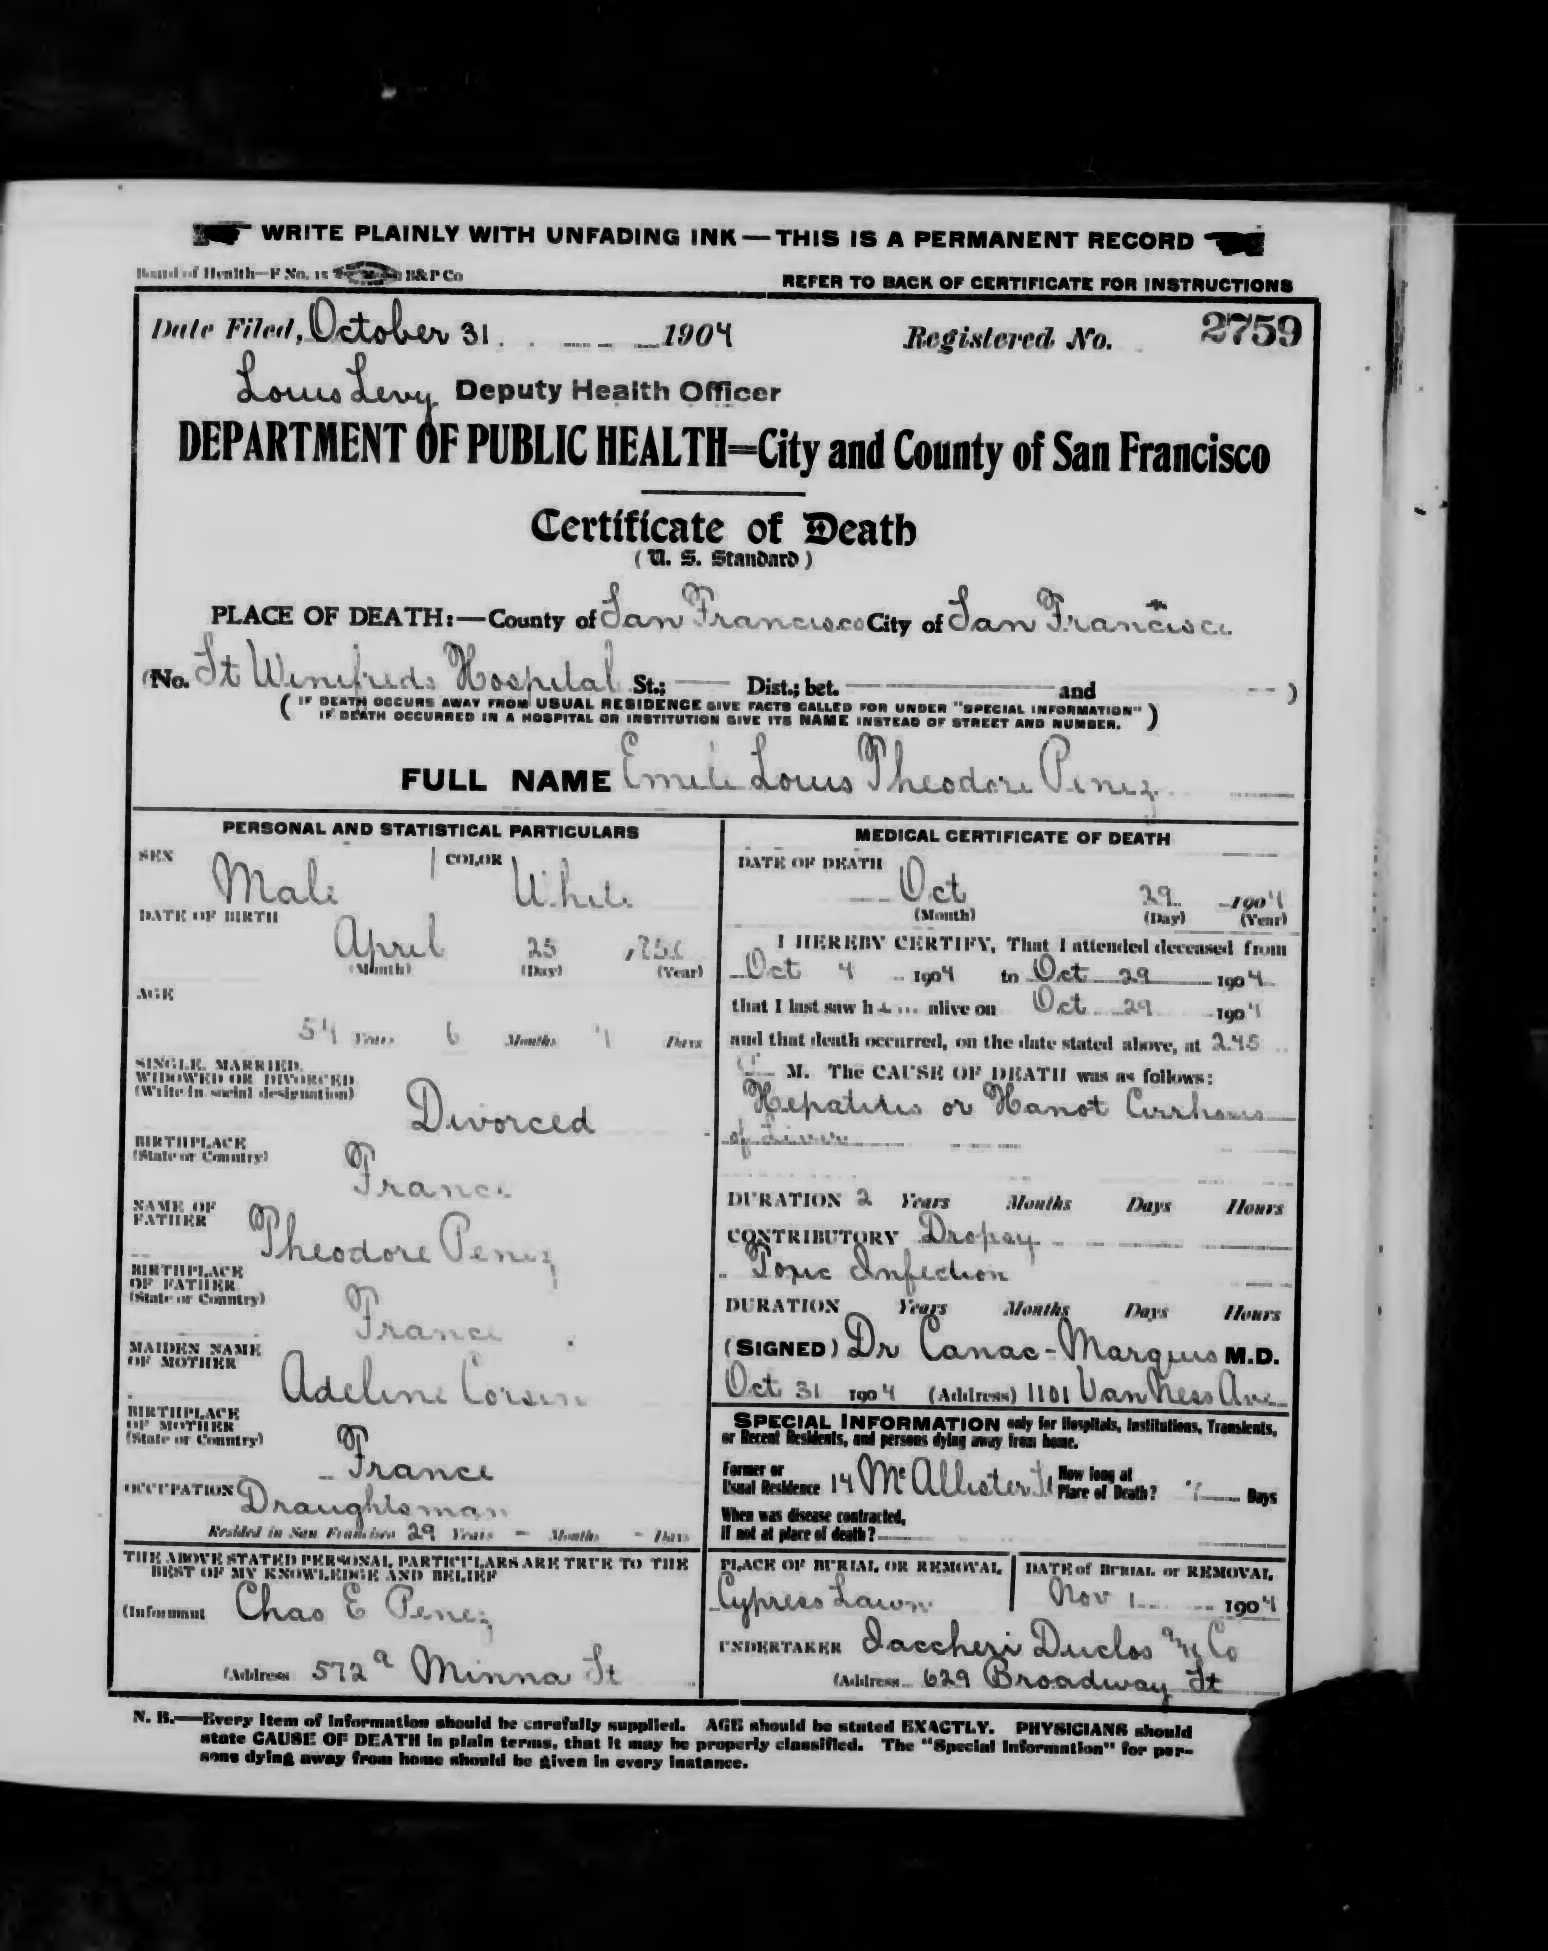 WRITE PLAINLY WITH UNFADING INK — THIS IS A PERMANENT RECORD
Board of Health—F No. 15 B&P Co
REFER TO BACK OF CERTIFICATE FOR INSTRUCTIONS
Date Filed, October 31 1904 Registered No. 2759
Louis Levy Deputy Health Officer
DEPARTMENT OF PUBLIC HEALTH=City and County of San Francisco
Certificate of Death
(U. S. Standard)
PLACE OF DEATH:—County of San Francisco City of San Francisco
(No. St Winifreds Hospital St.; Dist.; bet. and )
(IF DEATH OCCURS AWAY FROM USUAL RESIDENCE GIVE FACTS CALLED FOR UNDER "SPECIAL INFORMATION"
IF DEATH OCCURRED IN A HOSPITAL OR INSTITUTION GIVE ITS NAME INSTEAD OF STREET AND NUMBER.)
FULL NAME Emile Louis Theodore Penez
PERSONAL AND STATISTICAL PARTICULARS
SEX Male COLOR White
DATE OF BIRTH
April 25
(Month) (Day) (Year)
AGE
54 Years 6 Months 4 Days
SINGLE, MARRIED,
WIDOWED OR DIVORCED
(Write in social designation)
Divorced
BIRTHPLACE
(State or Country)
France
NAME OF
FATHER
Theodore Penez
BIRTHPLACE
OF FATHER
(State or Country)
France
MAIDEN NAME
OF MOTHER
Adeline Corsin
BIRTHPLACE
OF MOTHER
(State or Country)
France
OCCUPATION Draughtsman
Resided in San Francisco 29 Years – Months – Days
THE ABOVE STATED PERSONAL PARTICULARS ARE TRUE TO THE
BEST OF MY KNOWLEDGE AND BELIEF
(Informant Chas E Penez
(Address 572a Minna St
MEDICAL CERTIFICATE OF DEATH
DATE OF DEATH
Oct 29 1904
(Month) (Day) (Year)
I HEREBY CERTIFY, That I attended deceased from
Oct 4 1904 to Oct 29 1904
that I last saw h alive on Oct 29 1904
and that death occurred, on the date stated above, at 2.45
M. The CAUSE OF DEATH was as follows:
Hepatitis or Hanot Cirrhosis
of Liver
DURATION 2 Years Months Days Hours
CONTRIBUTORY Dropsy
Toxic Infection
DURATION Years Months Days Hours
(SIGNED) Dr Canac-Marquis M.D.
Oct 31 1904 (Address) 1101 Van Ness Ave
SPECIAL INFORMATION only for Hospitals, Institutions, Transients,
or Recent Residents, and persons dying away from home.
Former or
Usual Residence 14 McAllister St
How long at
Place of Death? Days
When was disease contracted,
If not at place of death?
PLACE OF BURIAL OR REMOVAL
Cypress Lawn
DATE of BURIAL or REMOVAL
Nov 1 1904
UNDERTAKER Iaccheri Duclos & Co
(Address 629 Broadway St
N. B.—Every item of information should be carefully supplied. AGE should be stated EXACTLY. PHYSICIANS should
state CAUSE OF DEATH in plain terms, that it may be properly classified. The "Special Information" for per-
sons dying away from home should be given in every instance.